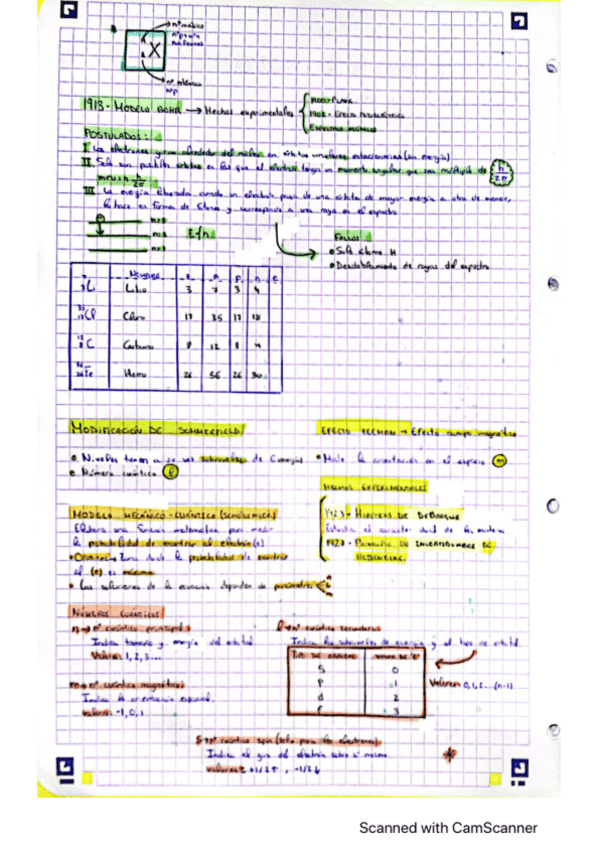 nº másico
X
nº atómico
1913 - MODELO BOHR → Hechos experimentales
POSTULADOS:
I. Los electrones giran alrededor del núcleo en órbitas circulares estacionarias (sin energía)
II. Solo son posibles órbitas en las que el electrón tenga un momento angular que sea múltiplo de h/2π
III. La energía liberada cuando un electrón pasa de una órbita de mayor energía a otra de menor,
y corresponde a una raya en el espectro
FALLOS
• Solo átomo H
• Desdoblamiento de rayas del espectro
NOMBRE
Li Litio 3 7 3 4
Cl Cloro 17 35 17 18
C Carbono 12
Fe Hierro 26 56 26 30
MODIFICACIÓN DE SOMMERFELD
EFECTO ZEEMAN → Efecto campo magnético
• Niveles tienen subniveles de Energía
• Número cuántico l
• Mide la orientación en el espacio m
HECHOS EXPERIMENTALES
MODELO MECÁNICO-CUÁNTICO (SCHRÖDINGER)
HIPÓTESIS DE DEBROGLIE
el carácter dual de la materia
1927 - PRINCIPIO DE INCERTIDUMBRE DE
HEISENBERG
una función matemática para medir
la probabilidad de encontrar al electrón (e)
• Orbital: Zona donde la probabilidad de encontrar
al (e) es máxima
• Las soluciones de la ecuación dependen de parámetros
NÚMEROS CUÁNTICOS
n → nº cuántico principal
Indica tamaño y energía del orbital
Valores: 1, 2, 3...
l → nº cuántico secundario
Indica los subniveles de energía y el tipo de orbital
TIPO DE ORBITAL VALOR DE "l"
S 0
P 1
d 2
f 3
Valores: 0, 1, 2... (n-1)
m → nº cuántico magnético
Indica la orientación espacial.
Valores: -1, 0, 1
S → nº cuántico spin (solo para los electrones)
Indica el giro del electrón sobre sí mismo.
Valores: +1/2↑, -1/2↓
Scanned with CamScanner